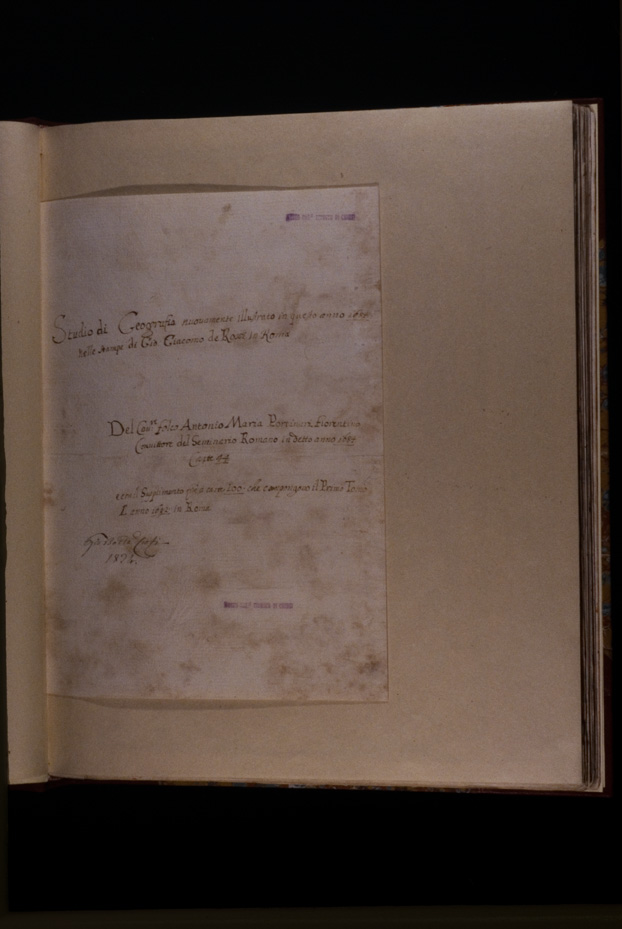 Studio di Geografia nuovamente illustrato in questo anno
Nelle stampe di Gio Giacomo de Rossi in Roma
Del Folco Antonio Maria Portinari fiorentino
Convittore del Seminario Romano in detto anno 1684
Carte 44
e con il Supplimento che compongono il Primo Tomo
L'anno in Roma